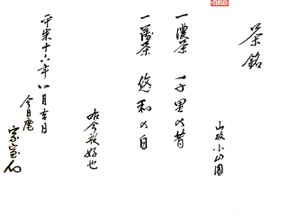 茶銘
山政小山園
一濃茶 千里の昔
一薄茶 悠和の白
好也
平成十六年八月吉日
今日庵
宗室